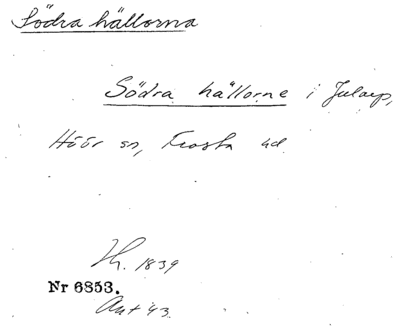 Södra hällorna
Södra hällorne i Jularp,
Höör sn, Frosta hd
1839
Nr 6853.
Ant 43.